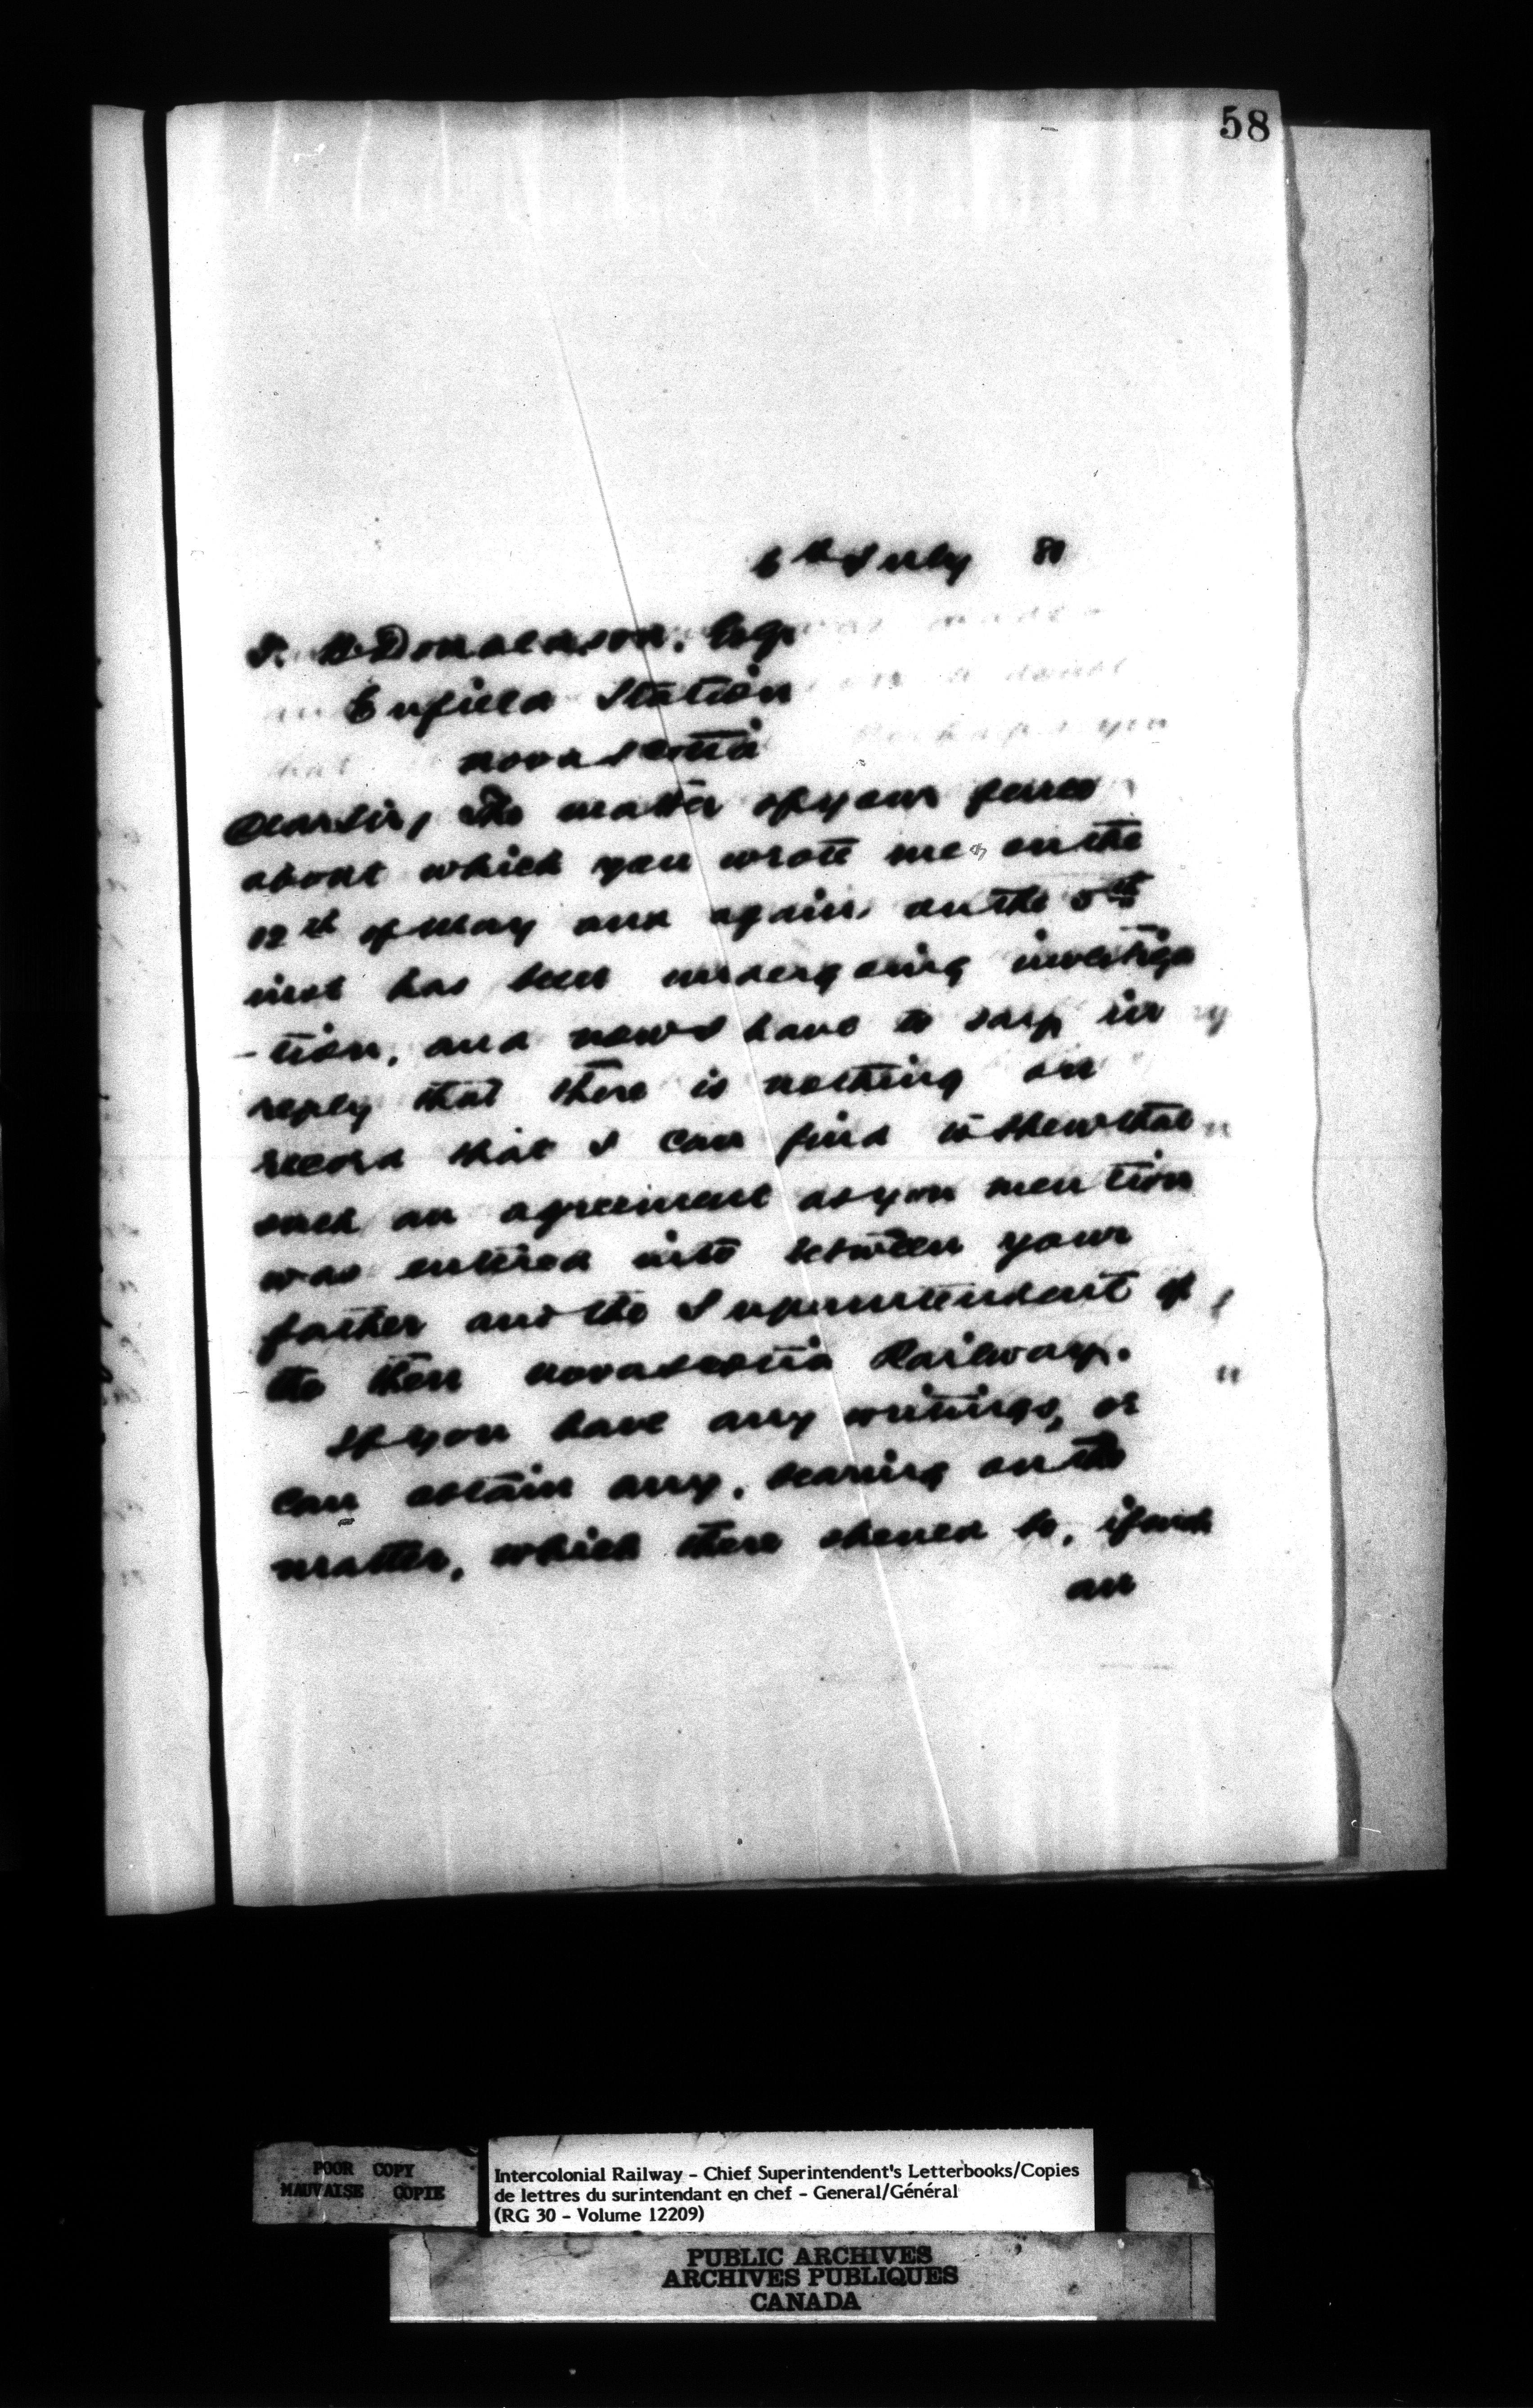 58
6th July 80
Donaldson. Esqr
Enfield Station
Nova Scotia
Dear Sir, The matter of your fence
about which you wrote me on the
12th of May and again on the 5th
inst has been undergoing investiga
-tion, and now I have to say in
reply that there is nothing on
record that I can find to shew that
such an agreement as you mention
was entered into between your
father and the Superintendent of
the then Nova Scotia Railway.
If you have any writings, or
can obtain any, bearing on the
matter, which there should be, if such
an
POOR COPY
MAUVAISE COPIE
Intercolonial Railway - Chief Superintendent's Letterbooks/Copies
de lettres du surintendant en chef - General/Général
(RG 30 - Volume 12209)
PUBLIC ARCHIVES
ARCHIVES PUBLIQUES
CANADA